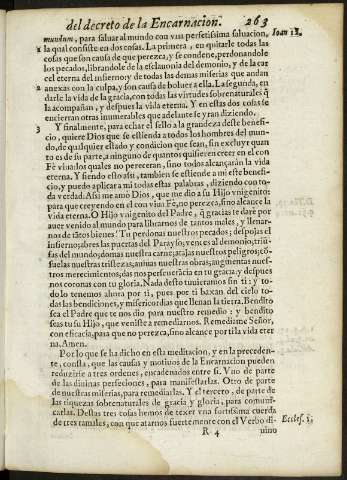 del decreto de la Encarnacion. 263
mundum, para saluar al mundo con vna perfetissima saluacion, Ioan 12.
1 la qual consiste en dos cosas. La primera, en quitarle todas las
cosas que son causa de que perezca, y se condene, perdonandole
los pecados, librandole de la esclauonia del demonio, y de la car
cel eterna del infierno y de todas las demas miserias que andan
2 anexas con la culpa, y son causa de boluer a ella. La segunda, en
darle la vida de la gracia, con todas las virtudes sobrenaturales q̃
la acompañan, y despues la vida eterna. Y en estas dos cosas se
encierran otras innumerables que adelante se yran diziendo.
3 Y finalmente, para echar el sello a la grandeza deste benefi-
cio, quiere Dios que se estienda a todos los hombres del mun-
do, de qualquier estado y condicion que sean, sin excluyr quan
to es de su parte, a ninguno de quantos quisieren creer en el con
Fè viua, los quales no pereceran, sino todos alcançarán la vida
eterna. Y siendo esto assi, tambien se estiende a mi este benefi-
cio, y puedo aplicar a mi todas estas palabras, diziendo con to-
da verdad: Assi me amò Dios, que me dio a su Hijo vnigenito:
para que creyendo en el con viua Fè, no perezca, sino alcance la
vida eterna. O Hijo vnigenito del Padre, q̃ gracias te darè por
auer venido al mundo para librarnos de tantos males, y llenar-
nos de tãtos bienes? Tu perdonas nuestros pecados; despojas el
infierno; abres las puertas del Parayso; vences al demonio; triũ-
fas del mundo; domas nuestra carne; atajas nuestros peligros; cõ-
suelas nuestras tristezas; animas nuestras obras; augmentas nues-
tros merecimientos; das nos perseuerãcia en tu gracia y despues
nos coronas con tu gloria. Nada desto tuuieramos sin ti: y to-
do lo tenemos ahora por ti, pues por ti baxan del cielo to-
das las bendiciones, y misericordias que llenan la tierra. Bendito
sea el Padre que te nos dio para nuestro remedio: y bendito
seas tu su Hijo, que veniste a remediarnos. Remediame Señor,
con eficacia, para que no perezca, sino alcance por ti la vida eter
na, Amen.
Por lo que se ha dicho en esta meditacion, y en la preceden-
te, consta, que las causas y motiuos de la Encarnacion pueden
reduzirse a tres ordenes, encadenados entre si. Vno de parte
de las diuinas perfeciones, para manifestarlas. Otro de parte
de nuestras miserias, para remediarlas. Y el tercero, de parte de
las riquezas sobrenaturales de gracia y gloria, para comuni-
carlas. Destas tres cosas hemos de texer vna fortissima cuerda
de tres ramales, con que atarnos fuertemente con el Verbo di- Eccles. 4.
R 4 uino